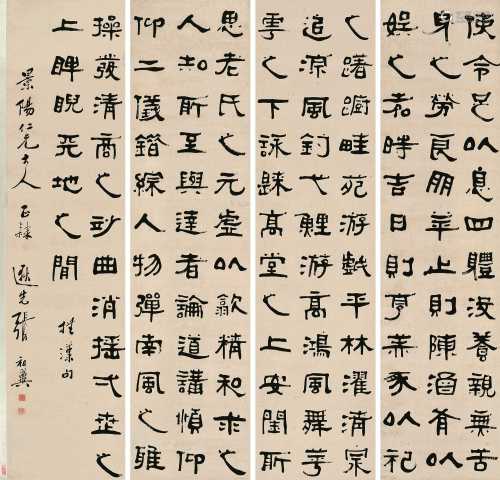 使令足以息四體沒養親無苦
身之勞良朋萃止則陳酒肴以
娛之嘉時吉日則亨羔豕以祀
之躇躕畦苑游戲平林濯清泉
追涼風釣弋鯉游高鴻風舞
雩之下詠歸高堂之上安閨所
思老氏之元虛以歙精和求之
人如所至與達者論道講傾仰
仰二儀錯綜人物彈南風之雅
操發清商之妙曲消搖弌世之
上睥睨天地之間
景陽仁兄大人正隸 逖先張祖翼